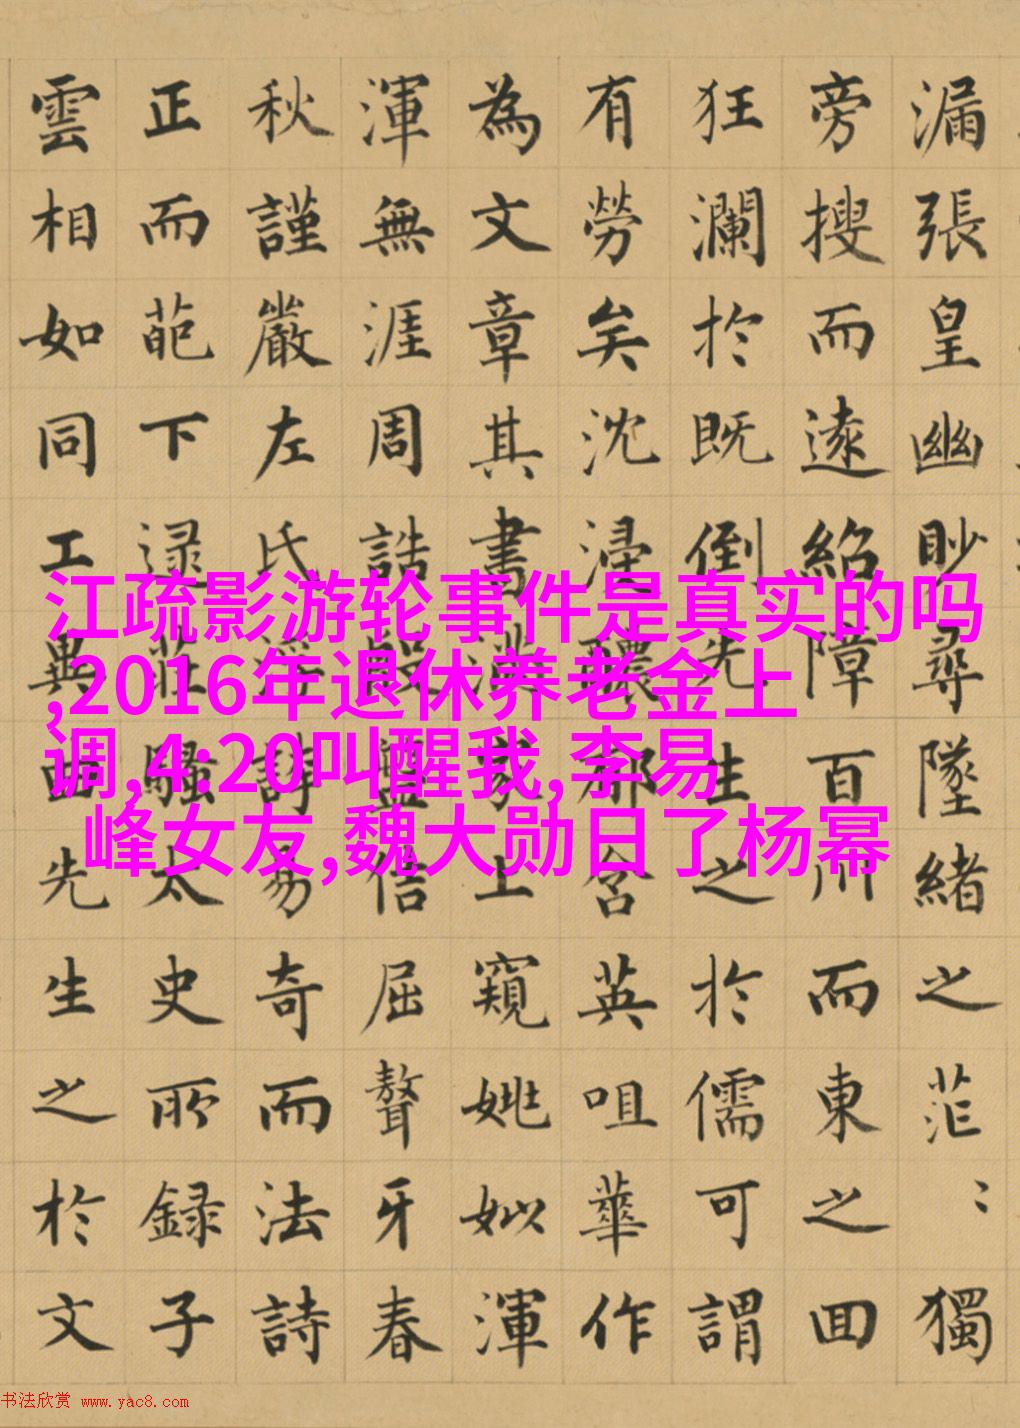 漏張皇幽眇尋墜緒之茫〻獨
旁搜而遠紹障百川而東之回
狂瀾於既倒先生之於儒可謂
有勞矣沈浸醲郁含英咀華作
為文章其書滿家上窺姚姒渾
渾無涯周誥殷盤佶屈聱牙春
秋謹嚴左氏浮誇易奇而法詩
正而葩下逮莊騷太史所錄子
雲相如同工異曲先生之於文
江疏影游轮事件是真实的吗
,2016年退休养老金上
调,4:20叫醒我,李易
峰女友,魏大勋日了杨幂
书法欣赏 www.yac8.com